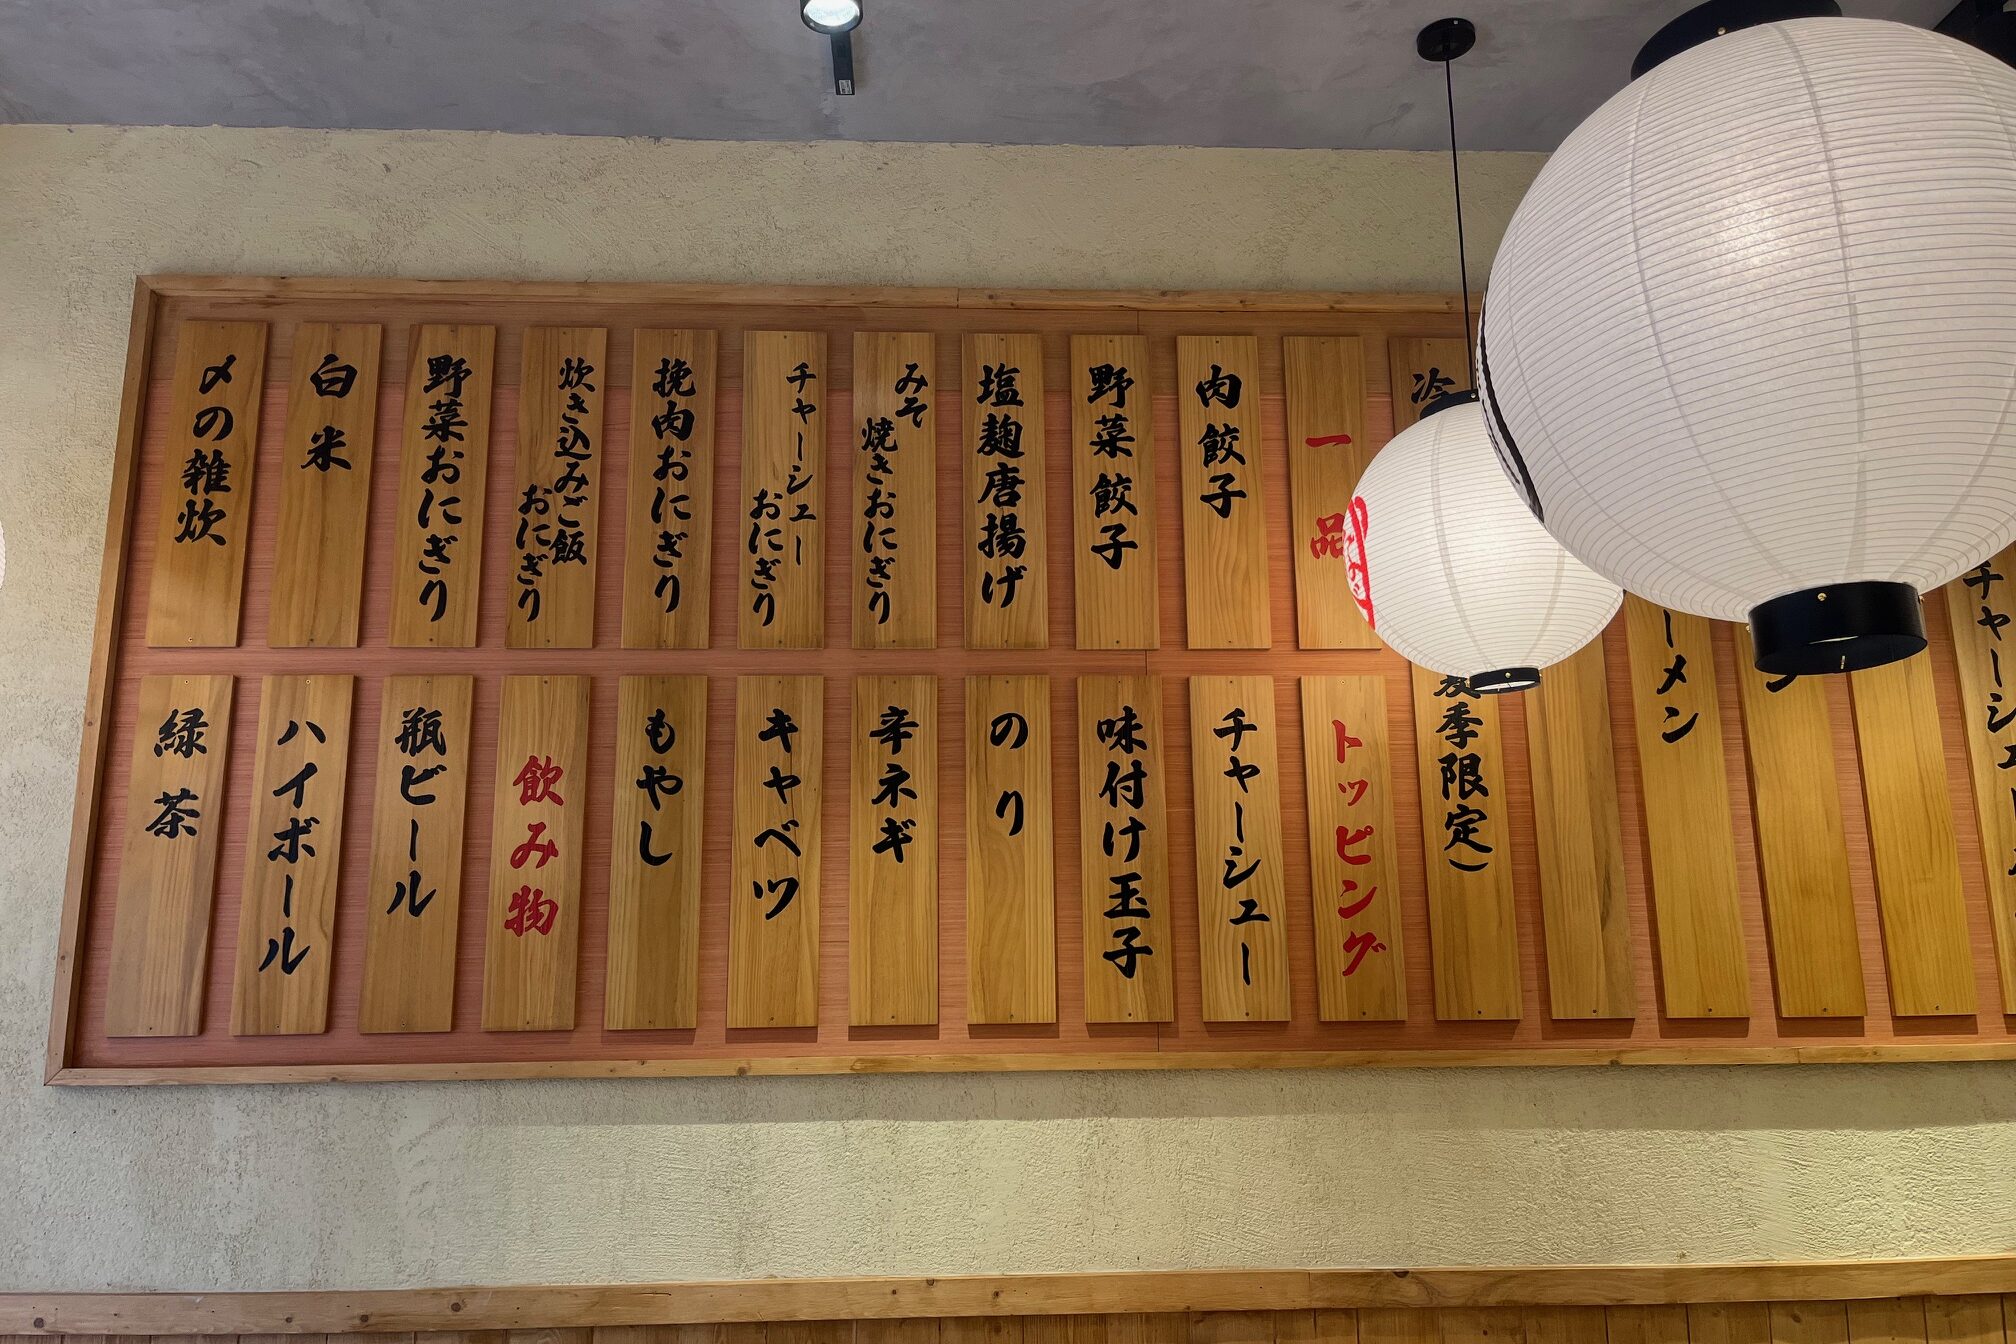 チャーシュー
ーメン
冷
夏季限定）
一品
肉餃子
野菜餃子
塩麹唐揚げ
みそ
焼きおにぎり
チャーシュー
おにぎり
挽肉おにぎり
炊き込みご飯
おにぎり
野菜おにぎり
白米
〆の雑炊
トッピング
チャーシュー
味付け玉子
のり
辛ネギ
キャベツ
もやし
飲み物
瓶ビール
ハイボール
緑茶